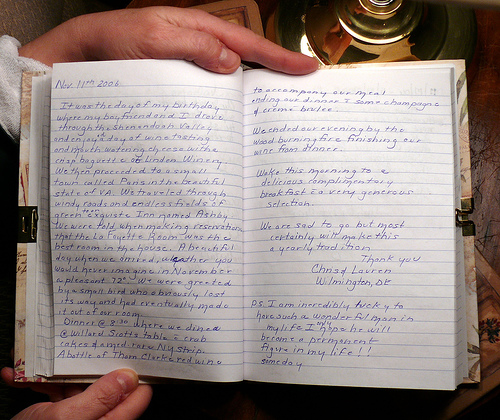 Nov. 11th 2006
It was the day of my birthday
where my boyfriend and I drove
through the Shenandoah Valley
and enjoyed a day of wine tasting
and mouth watering cheese with a
crisp baguette @ Linden Winery.
We then proceeded to a small
town called Paris in the beautiful
state of VA. We traveled through
windy roads and endless fields of
green to an exquisite Inn named Ashby.
We were told when making reservations
that the LaFayette Room was the
best room in the house. A beautiful
day when we arrived, weather you
would never imagine in November
a pleasant 72°. We were greeted
by a small bird who obviously lost
its way and had eventually made
it out of our room.
Dinner @ 8:30 where we dined
@ Willard Scott's table = crab
cakes & a med. rare NY strip.
A bottle of Thom Clarke red wine
to accompany our meal
ending our dinner = some champagne
& creme brulee.
We ended our evening by the
wood burning fire finishing our
wine from dinner.
Wake this morning to a
delicious complimentary
breakfast = a very generous
selection.
We are sad to go but most
certainly will make this
a yearly tradition
Thank you
Chris & Lauren
Wilmington, DE
P.S. I am incredibly lucky to
have such a wonderful man in
my life & only hope he will
become a permanent
figure in my life!!
someday